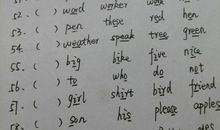 52. ( ) word worker work
53. ( ) pen these red hen
54. ( ) weather speak tree green
55. ( ) big bike five nice
56. ( ) to who do not
57. ( ) girl shirt bird friend
58. ( ) son his please apples